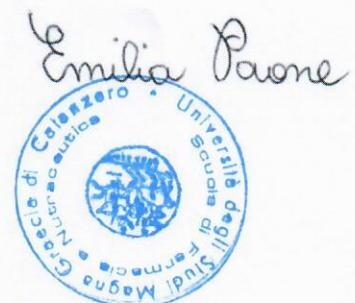 Emilia Paone
Università degli Studi Magna Graecia di Catanzaro
Scuola di Farmacia e Nutraceutica